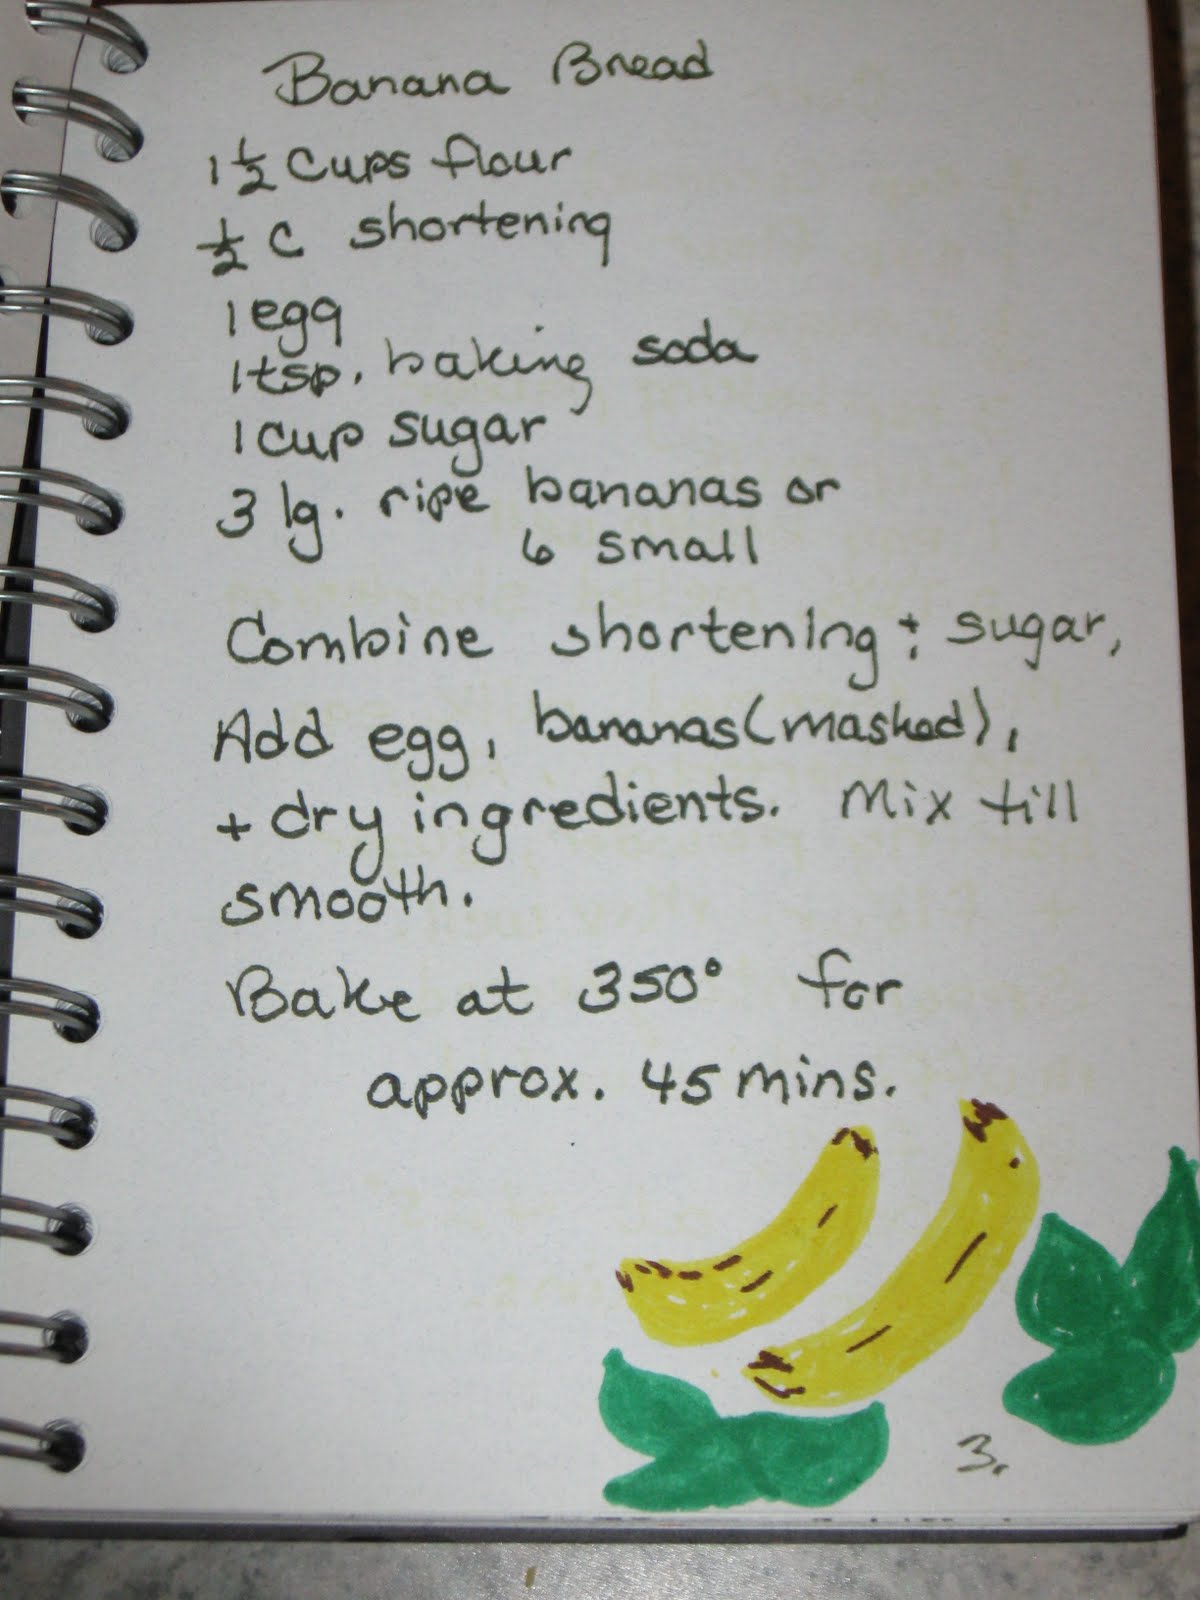 Banana Bread
1 1/2 Cups flour
1/2 C shortening
1 egg
1 tsp. baking soda
1 cup sugar
3 lg. ripe bananas or
6 small
Combine shortening + sugar,
Add egg, bananas (mashed),
+ dry ingredients. Mix till
smooth.
Bake at 350° for
approx. 45 mins.
3.